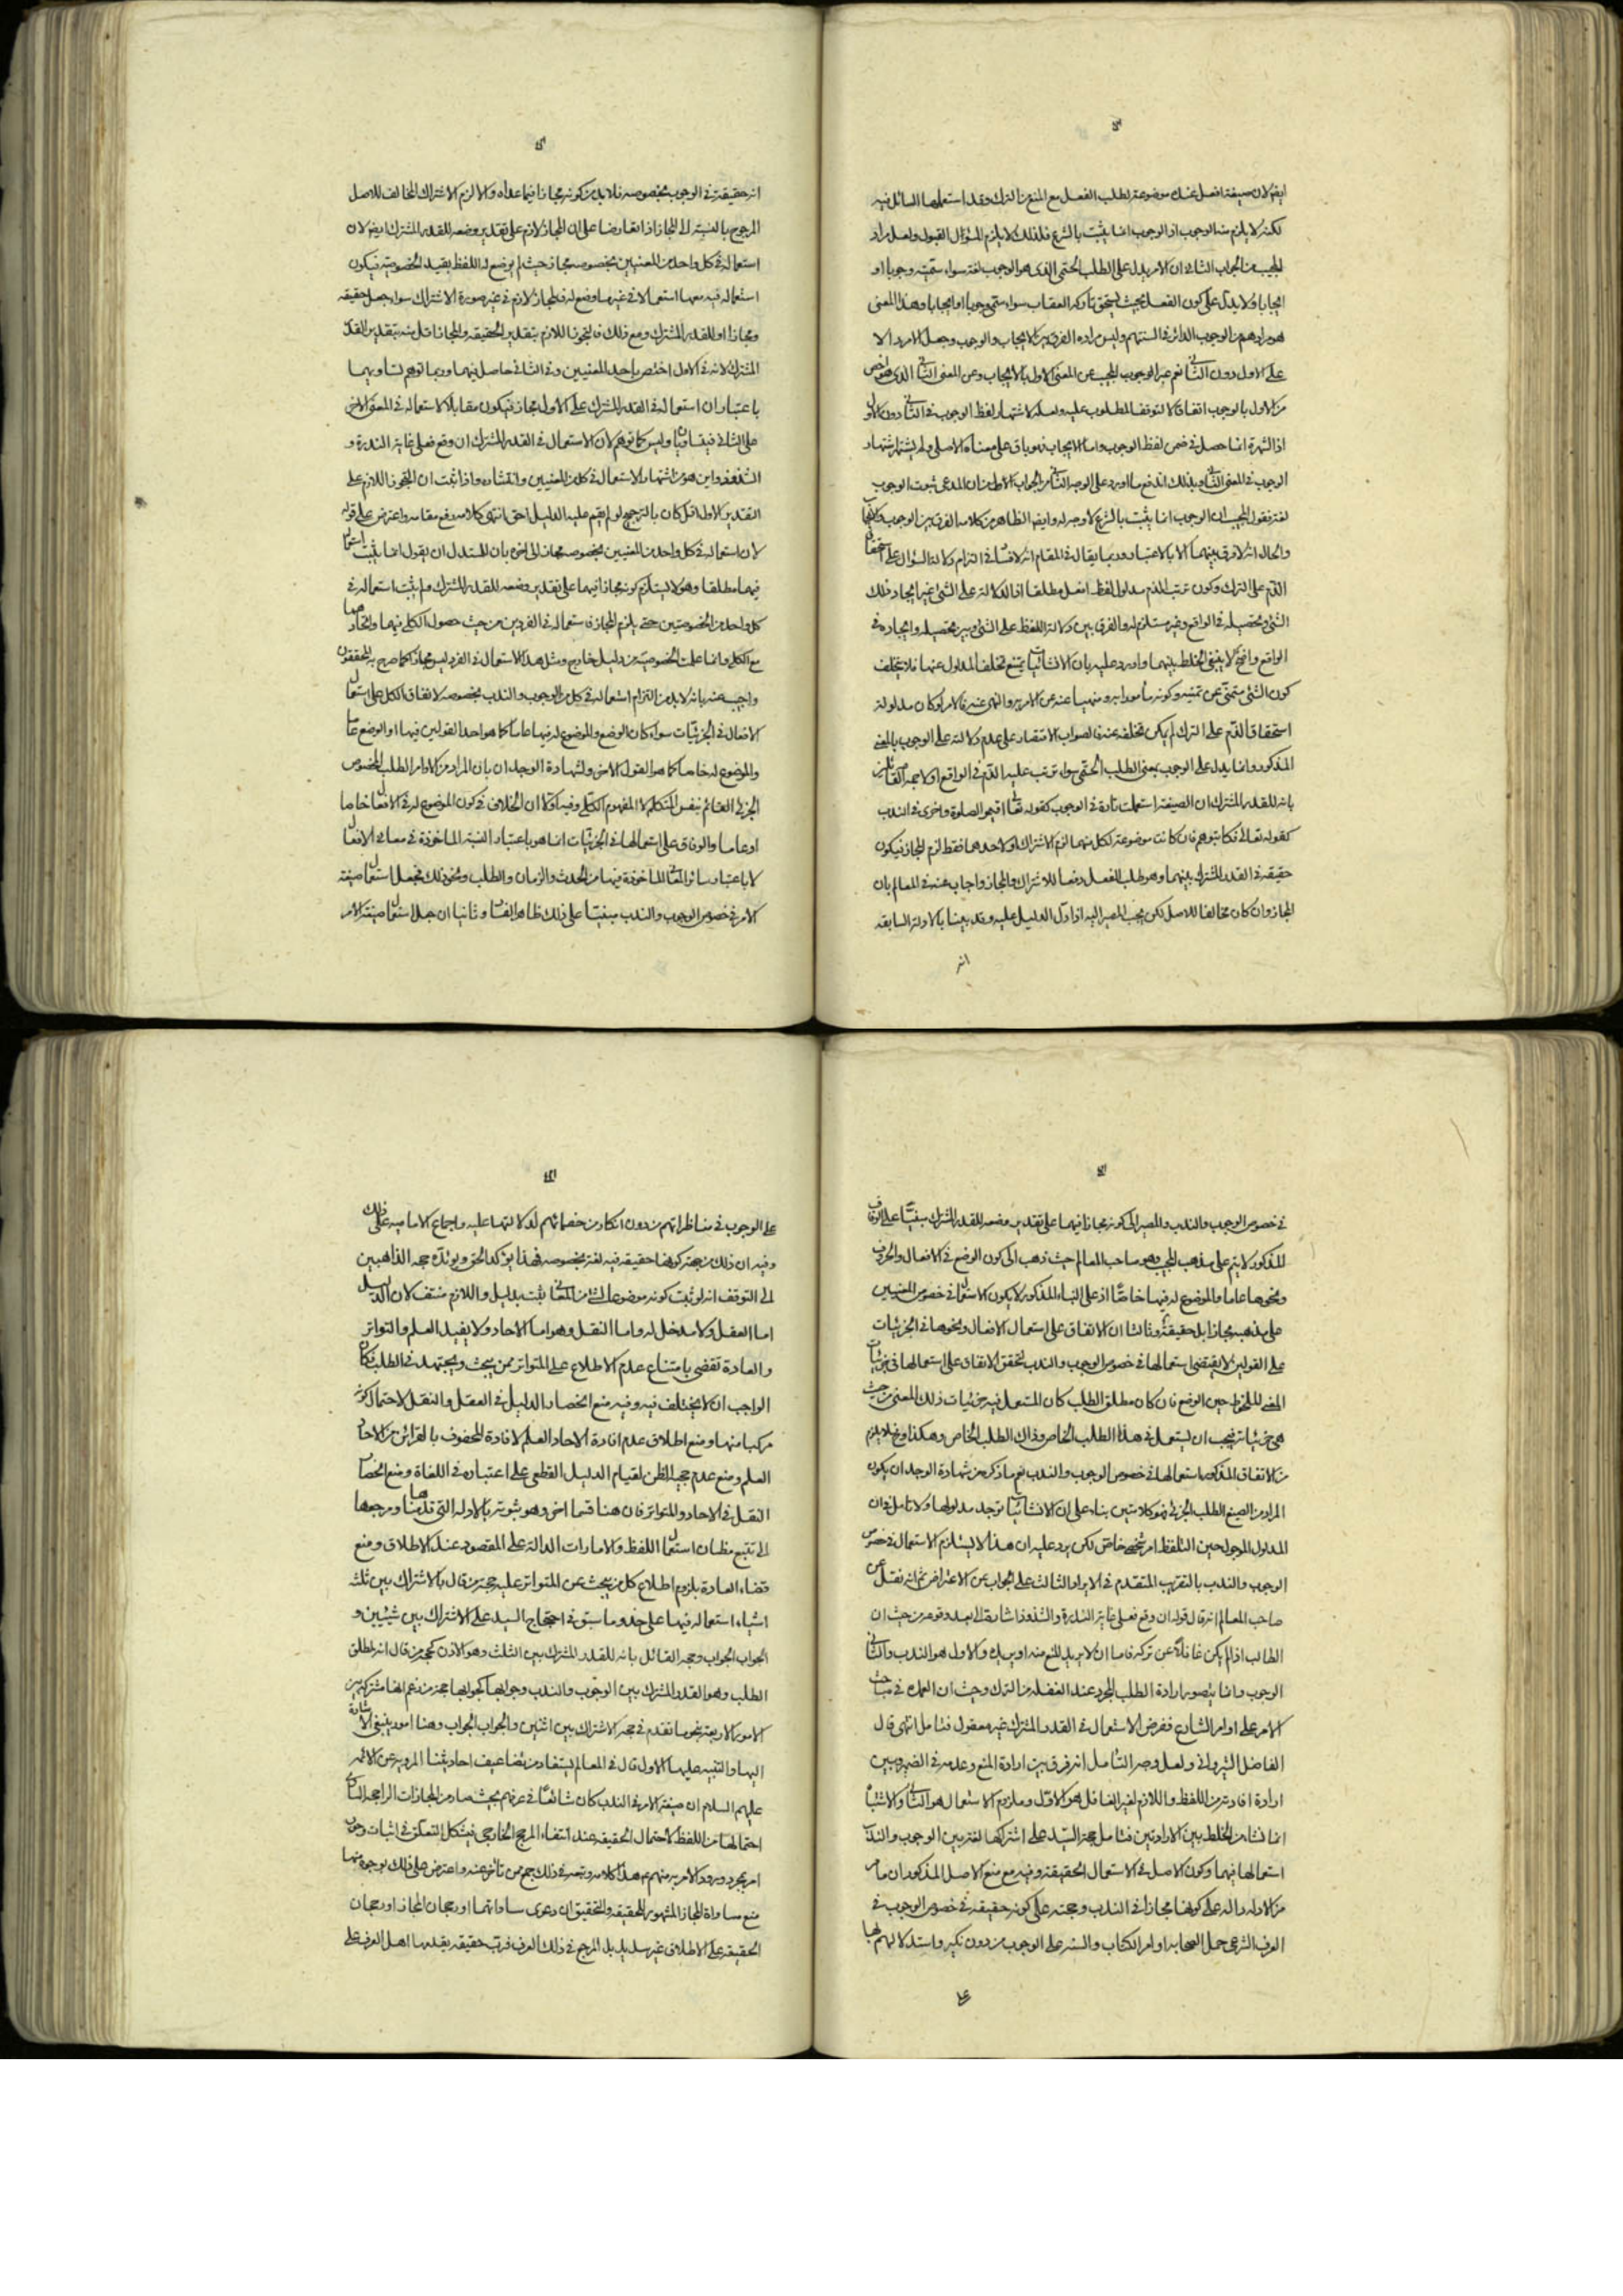 ايضا لان صيغة افعل عنده موضوعة لطلب الفعل مع المنع من الترك وقد استعملها السائل فيه
لكنه لا يلزم منه الوجوب اذ الوجوب انما يثبت بالشرع فلذلك لا يلزم المسؤال القبول ولعل مراد
المجيب من الجواب الثانى ان الامر يدل على الطلب الحتمى الذى هو الوجوب لغة سواء سميته وجوبا او
ايجابا ولا يدل على كون الفعل بحيث يستحق تاركه العقاب سواء سمى وجوبا او ايجابا وهذا المعنى
هو مرادهم من الوجوب الدائر فى السنتهم وليس مراده الفرق بين الايجاب والوجوب وجعل الامر دالا
على الاول دون الثانى نعم عبر الوجوب المجيب عن المعنى الاول بالايجاب وعن المعنى الثانى الذى هو اخص
من الاول بالوجوب اتفاقا لا لتوقف المطلوب عليه ولعله لاشتهار لفظ الوجوب فى الثانى دون الاول
اذ الشهرة انما حصل فى ضمن لفظ الوجوب واما الايجاب فهو باق على معناه الاصلى ولم يشتهر اشتهار
الوجوب فى المعنى الثانى وبذلك اندفع ما اورد على الوجه الثانى من الجواب الاول من ان المدعى ثبوت الوجوب
لغة فقول المجيب ان الوجوب انما يثبت بالشرع لا وجه له وايضا الظاهر من كلامه الفرق بين الوجوب والايجاب
والحال انه لا فرق بينهما الا بالاعتبار وربما يقال فى المقام انه لا فساد فى التزام دلالة السؤال على استحقاق
الذم على الترك وكون ترتب الذم مدلولا لفظ افعل مطلقا اذ الدلالة على الشئ غير ايجاد ذلك
الشئ وتحصيله فى الواقع وغير مستلزم له والفرق بين دلالة اللفظ على الشئ وبين تحصيله وايجاده فى
الواقع واضح لا ينبغى الخلط بينهما واورد عليه بان الانشائيات يمتنع تخلف المدلول عنها فلا يتخلف
كون الشئ متمنى عن تمنيه وكونه مأمورا به ومنهيا عنه عن الامر به والنهى عنه فالامر لو كان مدلوله
استحقاق الذم على الترك لم يكن تخلفه عنه فالصواب الاقتصار على عدم دلالته على الوجوب بالمعنى
المذكور وانما يدل على الوجوب بمعنى الطلب الحتمى سواء ترتب عليه الذم فى الواقع او لا حجة القائلين
بانه للقدر المشترك ان الصيغة استعملت تارة فى الوجوب كقوله تعالى اقيموا الصلوة واخرى فى الندب
كقوله تعالى فكاتبوهم فان كانت موضوعة لكل منهما لزم الاشتراك او لاحدهما فقط لزم المجاز فيكون
حقيقة فى القدر المشترك بينهما وهو طلب الفعل دفعا للاشتراك والمجاز واجاب عنه فى المعالم بان
المجاز وان كان مخالفا للاصل لكن يجب المصير اليه اذا دل الدليل عليه وقد بينا بالادلة السابقة
انه
انه حقيقة فى الوجوب بخصوصه فلا بد من كونه مجازا فيما عداه والا لزم الاشتراك المخالف للاصل
المرجوح بالنسبة الى المجاز اذا تعارضا على ان المجاز لازم على تقدير وضعه للقدر المشترك ايضا لان
استعماله فى كل واحد من المعنيين بخصوصه مجاز حيث لم يوضع له اللفظ بقيد الخصوصية فيكون
استعماله فيه معها استعمالا فى غير ما وضع له فالمجاز لازم فى غير صورة الاشتراك سواء جعل حقيقة
ومجازا او للقدر المشترك ومع ذلك فالتجوز اللازم بتقدير الحقيقة والمجاز اقل منه بتقدير القدر
المشترك لانه فى الاول اختص باحد المعنيين وفى الثانى حاصل فيهما وربما توهم تساويهما
باعتبار ان استعماله فى القدر المشترك على الاول مجاز فيكون مقابلا لاستعماله فى المعنى الاخر
على الثانى فيتساويان وليس كما توهم لان الاستعمال فى القدر المشترك ان وقع فعلى غاية الندرة و
الشذوذ واين هو من اشتهار الاستعمال فى كل من المعنيين وانتشاره واذا ثبت ان التجوز اللازم على
التقدير الاول اقل كان بالترجيح لو لم يقم عليه الدليل احق انتهى كلامه رفع مقامه واعترض على قوله
لان استعماله فى كل واحد من المعنيين بخصوصه مجاز الى اخره بان للمستدل ان يقول انما يثبت استعماله
فيهما مطلقا وهو لا يستلزم كونه مجازا فيهما على تقدير وضعه للقدر المشترك ولم يثبت استعماله فى
كل واحد من الخصوصيتين حتى يلزم المجاز فاستعماله فى الفردين من حيث حصول الكلى فيهما واتحادهما
مع الكلى وانما علمت الخصوصية من دليل خارج ومثل هذا الاستعمال فى الفرد ليس مجازا كما صرح به المحققون
واجيب عنه بانه لا بد من التزام استعماله فى كل من الوجوب والندب بخصوصه لاتفاق الكل على استعمال
الافعال فى الجزئيات سواء كان الوضع والموضوع له فيها عاما كما هو احد القولين فيها او الوضع عاما
والموضوع له خاصا كما هو القول الاخر ولشهادة الوجدان بان المراد من الاوامر الطلب المخصوص
الجزئى القائم بنفس المتكلم لا المفهوم الكلى وفيه اولا ان الخلاف فى كون الموضوع له فى الافعال خاصا
او عاما والوفاق على استعمالها فى الجزئيات انما هو باعتبار النسبة الماخوذة فى معانى الافعال
لا باعتبار سائر المعانى الماخوذة فيها من الحدث والزمان والطلب ونحو ذلك فجعل استعمال صيغة
الامر فى خصوص الوجوب والندب مبنيا على ذلك ظاهر الفساد وثانيا ان جعل استعمال صيغة الامر
فى خصوص الوجوب والندب والمصير الى كونه مجازا فيهما على تقدير وضعه للقدر المشترك مبنيا على الوفاق
المذكور لا يتم على مذهب المجيب وهو صاحب المعالم حيث ذهب الى كون الوضع فى الافعال والحروف
ونحوها عاما والموضوع له فيها خاصا اذ على البناء المذكور لا يكون الاستعمال فى خصوص المعنيين
على مذهبه مجازا بل حقيقة وثالثا ان الاتفاق على استعمال الافعال ونحوها فى الجزئيات
على القولين لا يقتضى استعمالها فى خصوص الوجوب والندب لتحقق الاتفاق على استعمالها فى جزئيات
المعنى الملحوظ حين الوضع فان كان مطلق الطلب كان المستعمل فيه جزئيات ذلك المعنى من حيث
هى جزئياته فيجب ان يستعمل فى هذا الطلب الخاص وذاك الطلب الخاص وهكذا وح فلا يلزم
من الاتفاق المذكور استعمالها فى خصوص الوجوب والندب نعم ما ذكره من شهادة الوجدان بكون
المراد من الصيغ الطلب الجزئى فهو كلام متين بناء على ان الانشائيات توجد مدلولها ولا تامل فى ان
المدلول الموجود حين التلفظ امر شخصى خاص لكن يرد عليه ان هذا لا يستلزم الاستعمال فى خصوص
الوجوب والندب بالتقريب المتقدم فى الايراد الثالث على الجواب عن الاعتراض ثم انه نقل عن
صاحب المعالم انه قال قوله ان وقع فعلى غاية الندرة والشذوذ اشارة الى بعد وقوعه من حيث ان
الطالب اذا لم يكن غافلا عن تركه فاما ان لا يريد المنع منه او يريده والاول هو الندب والثانى
الوجوب وانما يتصور ارادة الطلب المجرد عند الغفلة من الترك وحيث ان العمدة فى مباحث
الامر على اوامر الشارع ففرض الاستعمال فى القدر المشترك غير معقول فتامل انتهى قال
الفاضل الشروانى ولعل وجه التامل انه فرق بين ارادة المنع وعدمه فى الضمير وبين
ارادة افادته من اللفظ واللازم لغير الغافل هو الاول وملزوم الاستعمال هو الثانى والاشتباه
انما نشا من الخلط بين الارادتين فتامل حجة السيد على اشتراكها لغة بين الوجوب والندب
استعمالها فيهما وكون الاصل فى الاستعمال الحقيقة وفيه مع منع الاصل المذكور ان ما مر
من الادلة دالة على كونها مجازا فى الندب وحجته على كونه حقيقة فى خصوص الوجوب فى
العرف الشرعى حمل الصحابة اوامر الكتاب والسنة على الوجوب من دون نكير واستدلالهم بها
على
على الوجوب فى مناظراتهم من دون انكار من خصمائهم لدلالتها عليه واجماع الامامية على ذلك
وفيه ان ذلك من جهة كونها حقيقة فيه لغة بخصوصه فهذا يؤكد الحق ويؤيده حجة الذاهبين
الى التوقف انه لو ثبت كونه موضوعا لشئ من المعانى ثبت بدليل واللازم منتف لان الدليل
اما العقل ولا مدخل له واما النقل وهو اما الاحاد ولا يفيد العلم والتواتر
والعادة تقضى بامتناع عدم الاطلاع على المتواتر ممن يبحث ويجتهد فى الطلب فكان
الواجب ان لا يختلف فيه وفيه منع انحصار الدليل فى العقل والنقل لاحتمال كونه
مركبا منهما ومنع اطلاق عدم افادة الاحاد العلم لافادة المحفوف بالقرائن من الاحاد
العلم ومنع عدم حجية الظن لقيام الدليل القطعى على اعتباره فى اللغات ومنع انحصار
النقل فى الاحاد والمتواتر فان هنا قسما اخر وهو ثبوته بالادلة التى قدمناها ومرجعها
الى تتبع مظان استعمال اللفظ والامارات الدالة على المقصود عند الاطلاق ومنع
قضاء العادة بلزوم اطلاع كل من يبحث عن المتواتر عليه حجة من قال بالاشتراك بين ثلثة
اشياء استعماله فيها على حذو ما سبق فى احتجاج السيد على الاشتراك بين شيئين و
الجواب الجواب وحجة القائل بانه للقدر المشترك بين الثلث وهو الاذن كحجة من قال انه لمطلق
الطلب وهو القدر المشترك بين الوجوب والندب وجوابها كجوابها حجة من زعم انها مشتركة بين
الامور الاربعة نحو ما تقدم فى حجة الاشتراك بين اثنين والجواب الجواب وهنا امور ينبغى الاشارة
اليها والتنبيه عليها الاول قال فى المعالم يستفاد من تضاعيف احاديثنا المروية عن الائمة
عليهم السلام ان صيغة الامر فى الندب كان شائعا فى عرفهم بحيث صار من المجازات الراجحة المساوى
احتمالها من اللفظ لاحتمال الحقيقة عند انتفاء المرجح الخارجى فيشكل التعلق فى اثبات وجوب
امر بمجرد ورود الامر به منهم عم هذا كلامه وتبعه فى ذلك جمع ممن تاخر عنه واعترض على ذلك بوجوه منها
منع مساواة المجاز المشهور للحقيقة والتحقيق ان دعوى مساواتهما او رجحان المجاز او رجحان
الحقيقة على الاطلاق غير سديد بل المرجع فى ذلك العرف فرب حقيقة يقدمها اهل العرف على